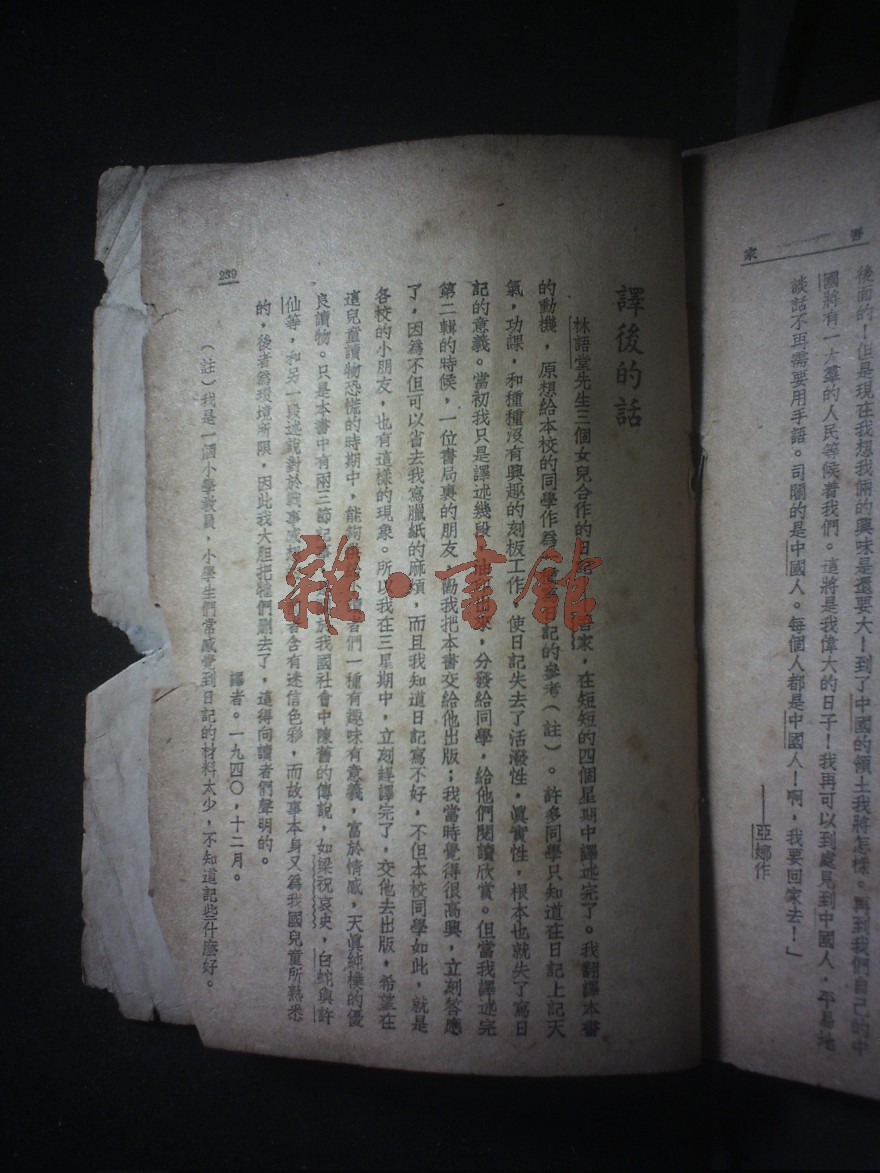 吾家
後面的！但是現在我想我倆的興味是還要大！到了中國的領土我將怎樣。再到我們自己的中
國將有一大羣的人民等候着我們。這將是我偉大的日子！我再可以到處見到中國人，平易地
談話不再需要用手語。司關的是中國人。每個人都是中國人！啊，我要回家去！」
——亞娜作
譯後的話
林語堂先生三個女兒合作的日記吾家，在短短的四個星期中譯述完了。我翻譯本書
的動機，原想給本校的同學作為記的參考（註）。許多同學只知道在日記上記天
氣，功課，和種種沒有興趣的刻板工作，使日記失去了活潑性，眞實性，根本也就失了寫日
記的意義。當初我只是譯述幾段，油印出來，分發給同學，給他們閱讀欣賞。但當我譯述完
第二輯的時候，一位書局裏的朋友，勸我把本書交給他出版；我當時覺得很高興，立刻答應
了，因為不但可以省去我寫臘紙的麻煩，而且我知道日記寫不好，不但本校同學如此，就是
各校的小朋友，也有這樣的現象。所以我在三星期中，立刻趕譯完了，交他去出版，希望在
這兒童讀物恐慌的時期中，能夠讀者們一種有趣味有意義，富於情感，天眞純樸的優
良讀物。只是本書中有兩三節記於我國社會中陳舊的傳說，如梁祝哀史，白蛇與許
仙等，和另一段述說對於戰事者含有迷信色彩，而故事本身又為我國兒童所熟悉
的，後者為環境所限，因此我大胆把牠們刪去了，這得向讀者們聲明的。
譯者。一九四〇，十二月。
（註）我是一個小學教員，小學生們常感覺到日記的材料太少，不知道記些什麽好。
239
雜·書館